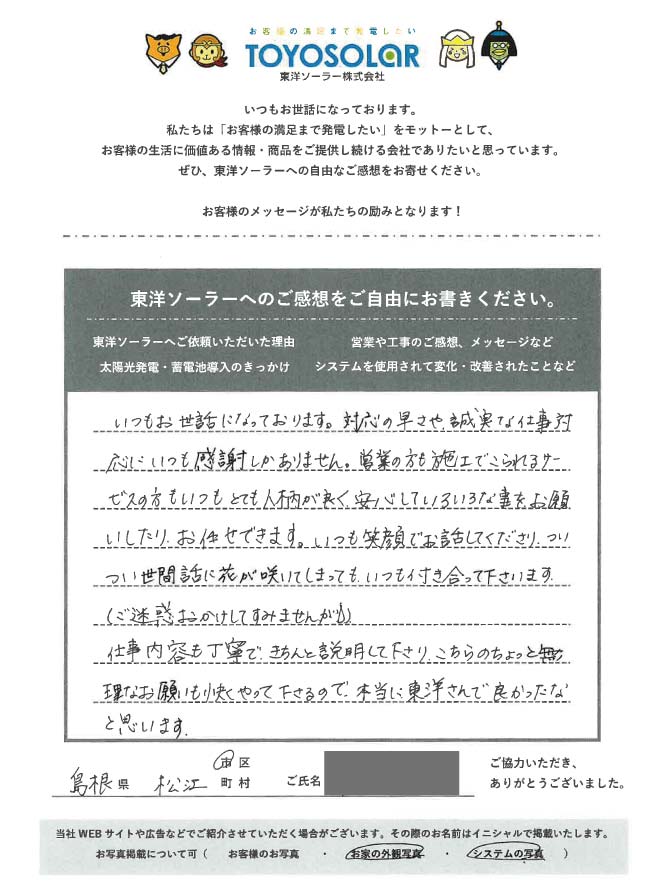 お客様の満足まで発電したい
TOYOSOLAR
東洋ソーラー株式会社
いつもお世話になっております。
私たちは「お客様の満足まで発電したい」をモットーとして、
お客様の生活に価値ある情報・商品をご提供し続ける会社でありたいと思っています。
ぜひ、東洋ソーラーへの自由なご感想をお寄せください。
お客様のメッセージが私たちの励みとなります！
東洋ソーラーへのご感想をご自由にお書きください。
東洋ソーラーへご依頼いただいた理由 営業や工事のご感想、メッセージなど
太陽光発電・蓄電池導入のきっかけ システムを使用されて変化・改善されたことなど
いつもお世話になっております。対応の早さや、誠実な仕事対
応にいつも感謝しかありません。営業の方も施工でこられるサー
ビスの方もいつもとても人柄が良く、安心していろいろな事をお願
いしたり、お任せできます。いつも笑顔でお話してくださり、つい
つい世間話に花が咲いてしまっても、いつも付き合って下さいます。
（ご迷惑おかけしてすみませんが）
仕事内容も丁寧で、きちんと説明して下さり、こちらのちょっと無
理なお願いも快くやって下さるので、本当に東洋さんで良かったな
と思います。
島根県 松江 市区町村 ご氏名
ご協力いただき、
ありがとうございました。
当社WEBサイトや広告などでご紹介させていただく場合がございます。その際のお名前はイニシャルで掲載いたします。
お写真掲載について可（ お客様のお写真 ・ お家の外観写真 ・ システムの写真 ）